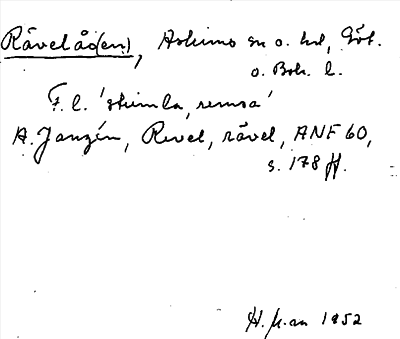 Rävelås(en), Askims sn o. hd, Göt.
o. Boh. l.
F. l. 'skimla, remsa'
A. Janzén, Revel, rävel, ANF 60,
s. 178 ff.
1952